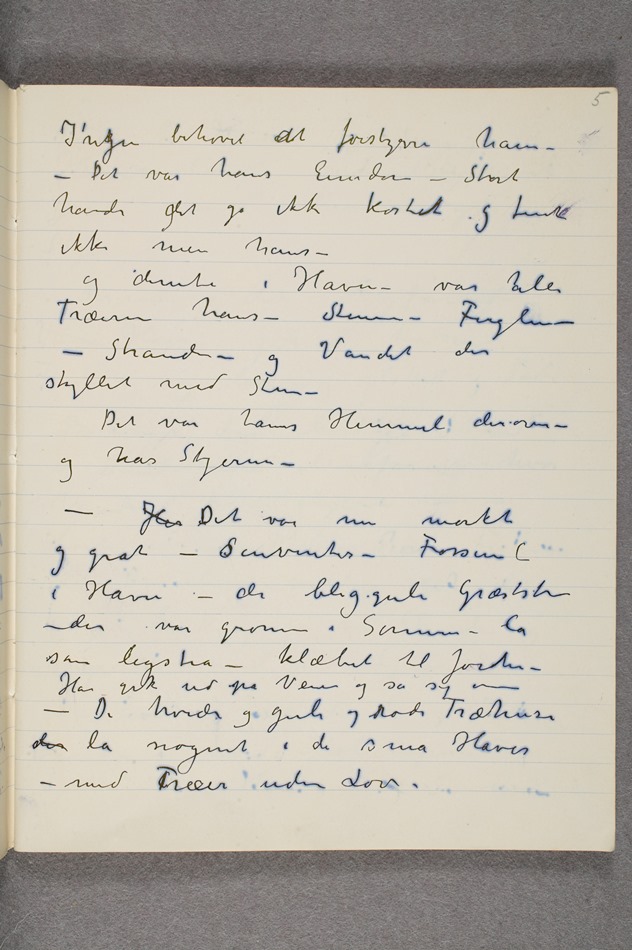 5
Ingen behøved at forstyrre ham –
– Det var hans Eiendom – Stort
havde det jo ikke kostet og
ikke men hans –
og dernede i Haven – var alle
Træerne hans – Stenene – Fuglene –
– Stranden – og Vandet der
skyllet med Stene –
Det var hans Himmel deroven –
og hans Stjerner –
– Det var nu mørkt
og gråt – Senvinter –
i Haven – de bleggule Græsstrå
– der var grønne i Sommer – lå
som ligstrå – klæbet til Jorden –
Han gik ud på Veien og så sig om
– De hvide og gule og røde Træhuse
der lå nøgent i de små Haver
– med Træer uden Løv.